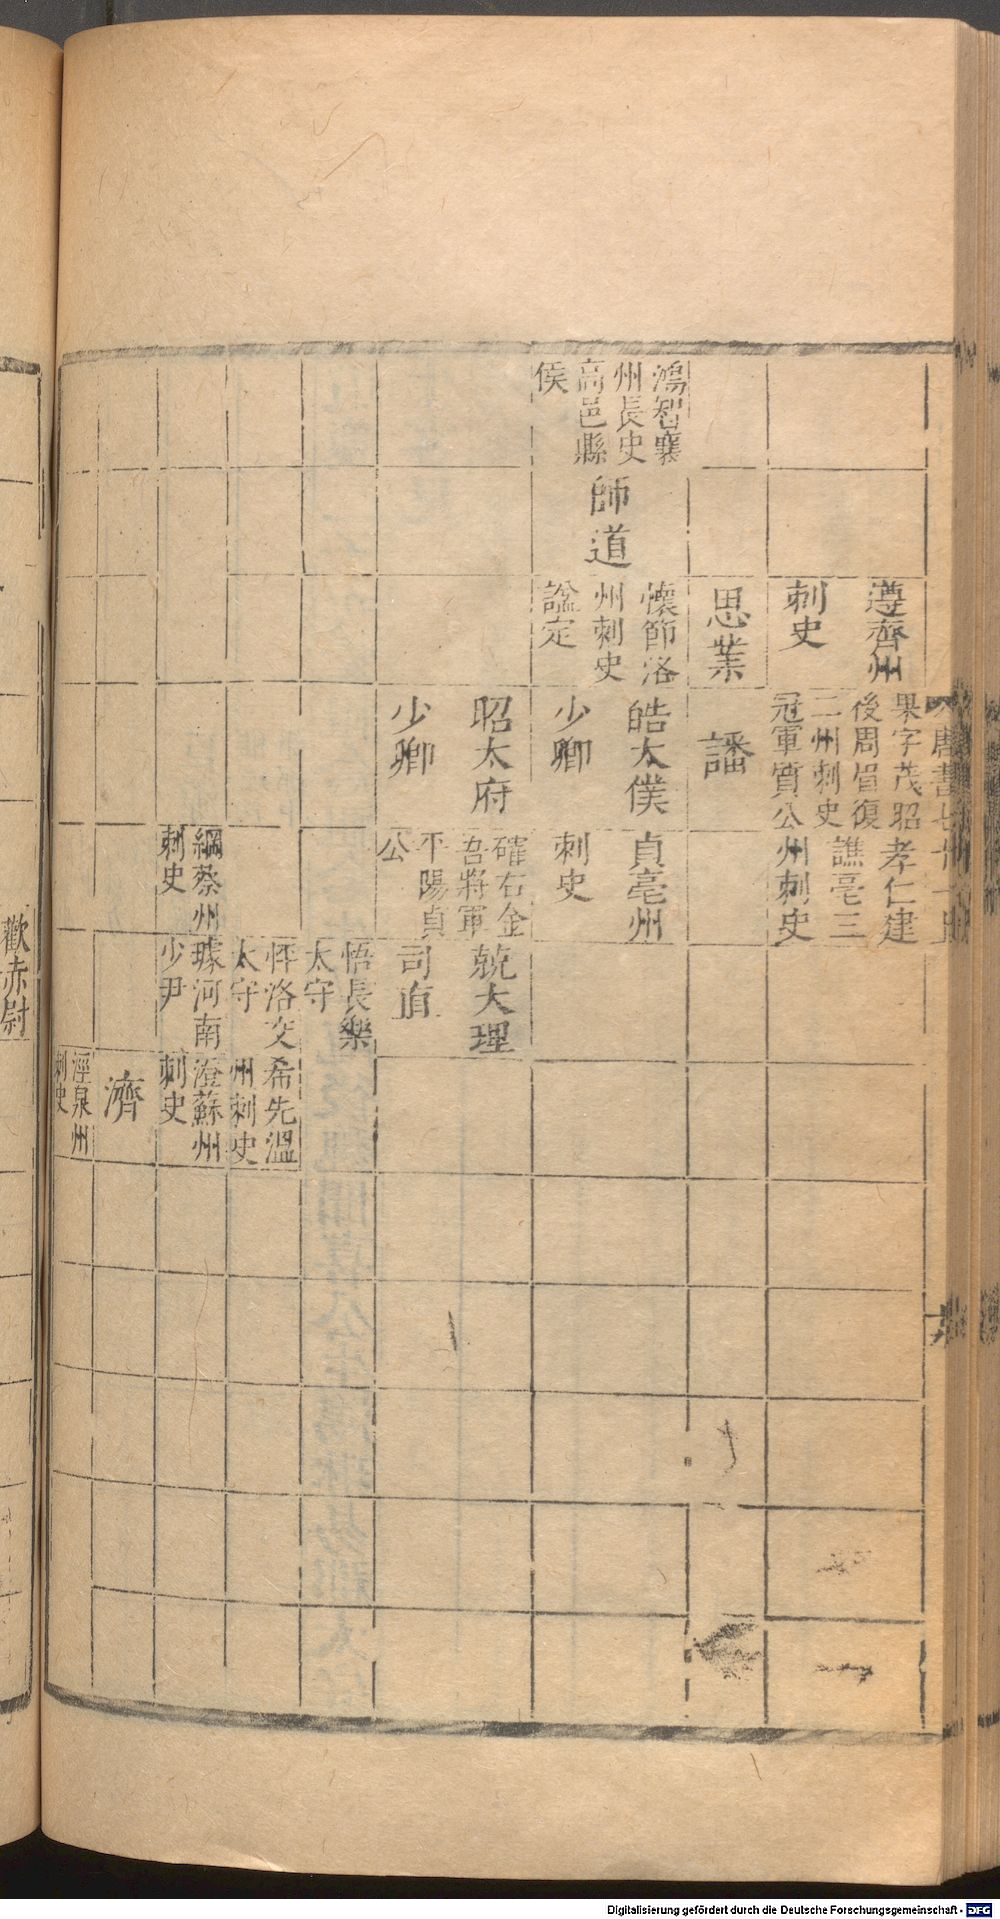 鴻智襄
州長史
高邑縣
侯
師
道
遵齊州
刺史
思業
懷節洛
州刺史
諡定
果字茂昭
後周眉復
二州刺史
冠軍質公
譒
皓太僕
少卿
昭太府
少卿
孝仁建
譙亳三
州刺史
貞亳州
刺史
確右金
吾將軍
平陽貞
公
綱蔡州
刺史
兢大理
司直
悟長樂
太守
怦洛交
太守
璩河南
少尹
希先溫
州刺史
澄蘇州
刺史
濟
溼泉州
刺史
歡赤尉
Digitalisierung gefördert durch die Deutsche Forschungsgemeinschaft - DFG